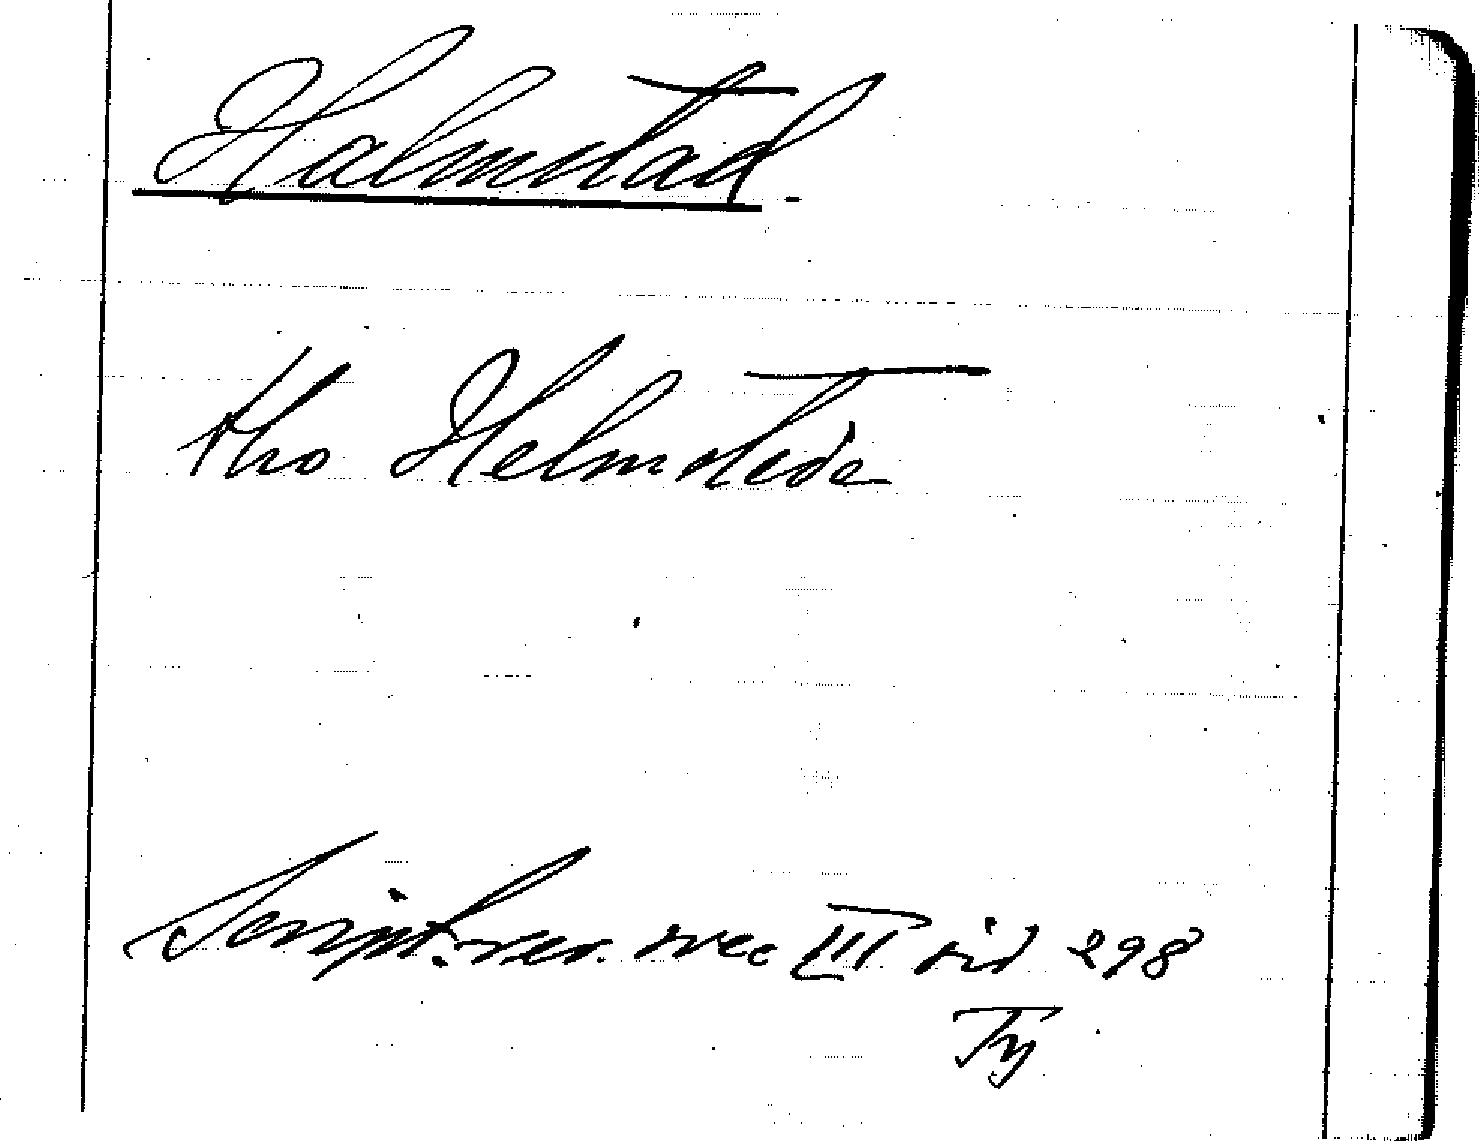 Halmstad.
tho Helmstede
Script. rer. svec III sid 298
Ty